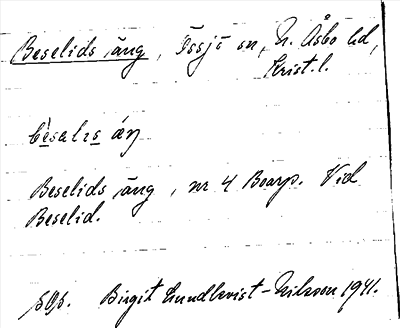 Beselids äng, Össjö sn, N. Åsbo hd,
Krist. l.
Beselids äng, nr 4 Boarp. Vid
Beselid.
Birgit Lundkvist-Nilsson 1941.